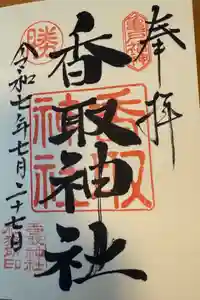 奉拝
亀戸
香取神社
香取神社
勝
令和七年七月二十七日